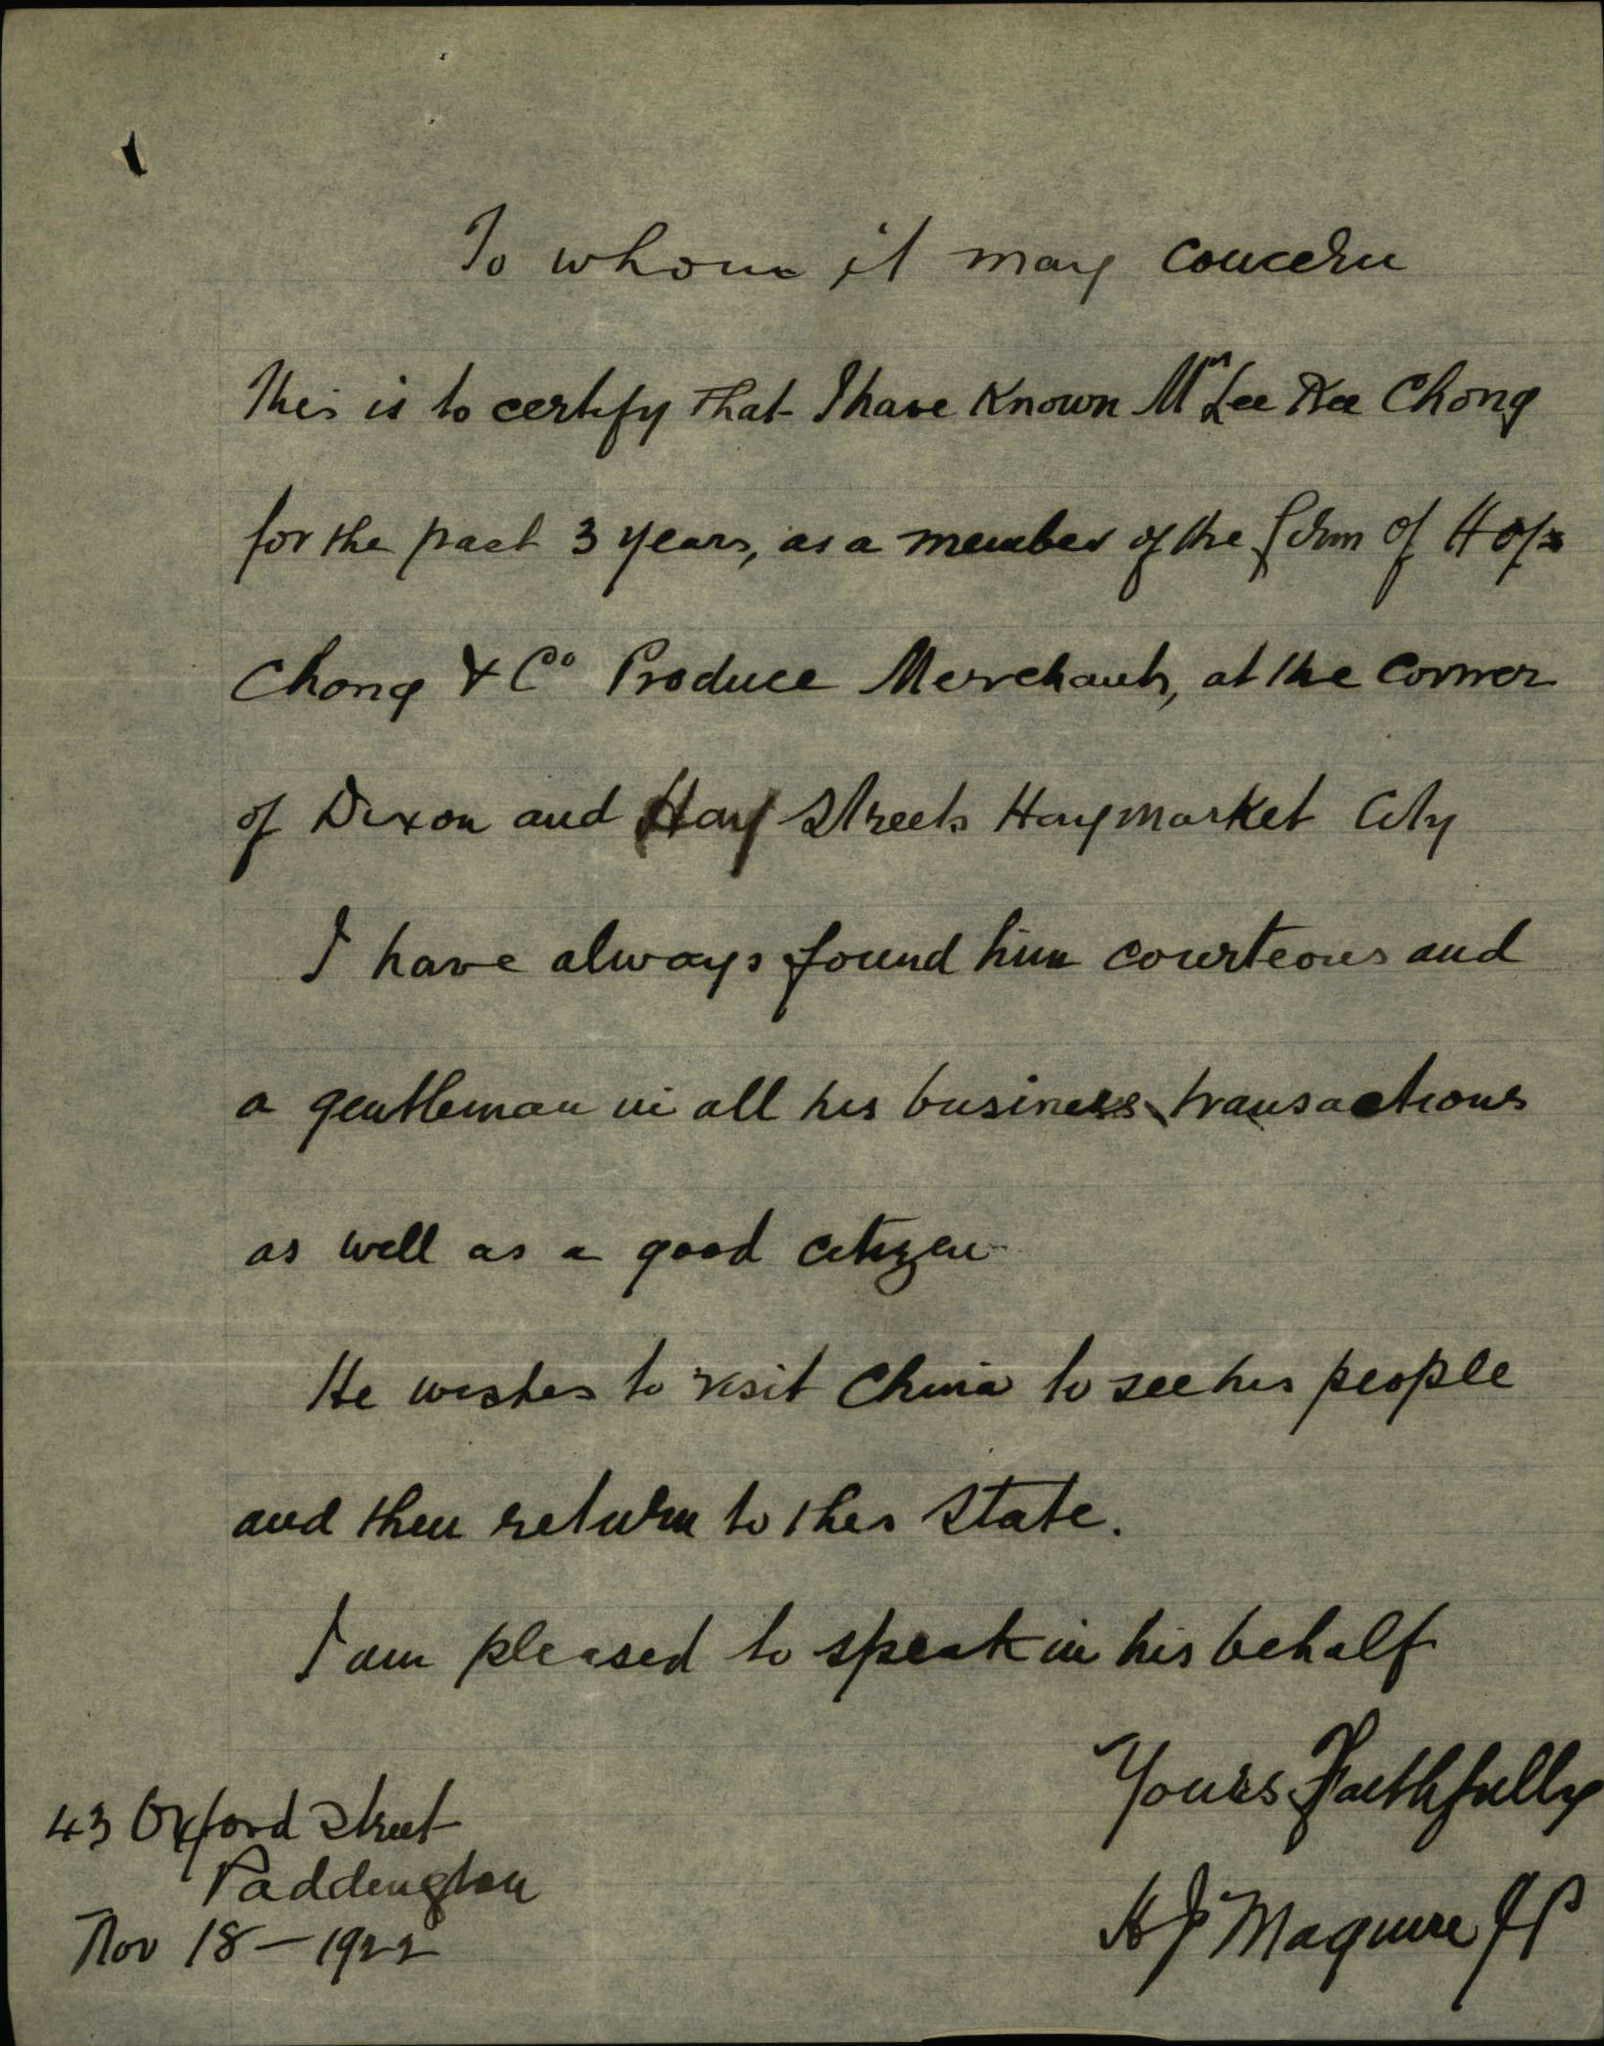 To whom it may concern
This is to certify that I have Known Mr Lee Kee Chong
for the past 3 years, as a member of the firm of Hop
Chong & Co Produce Merchants, at the corner
of Dixon and Hay Streets Haymarket City
I have always found him courteous and
a gentleman in all his business transactions
as well as a good citizen
He wishes to visit China to see his people
and then return to this State.
I am pleased to speak in his behalf
Yours Faithfully
H J Maguire JP
43 Oxford Street
Paddington
Nov 18 - 1922